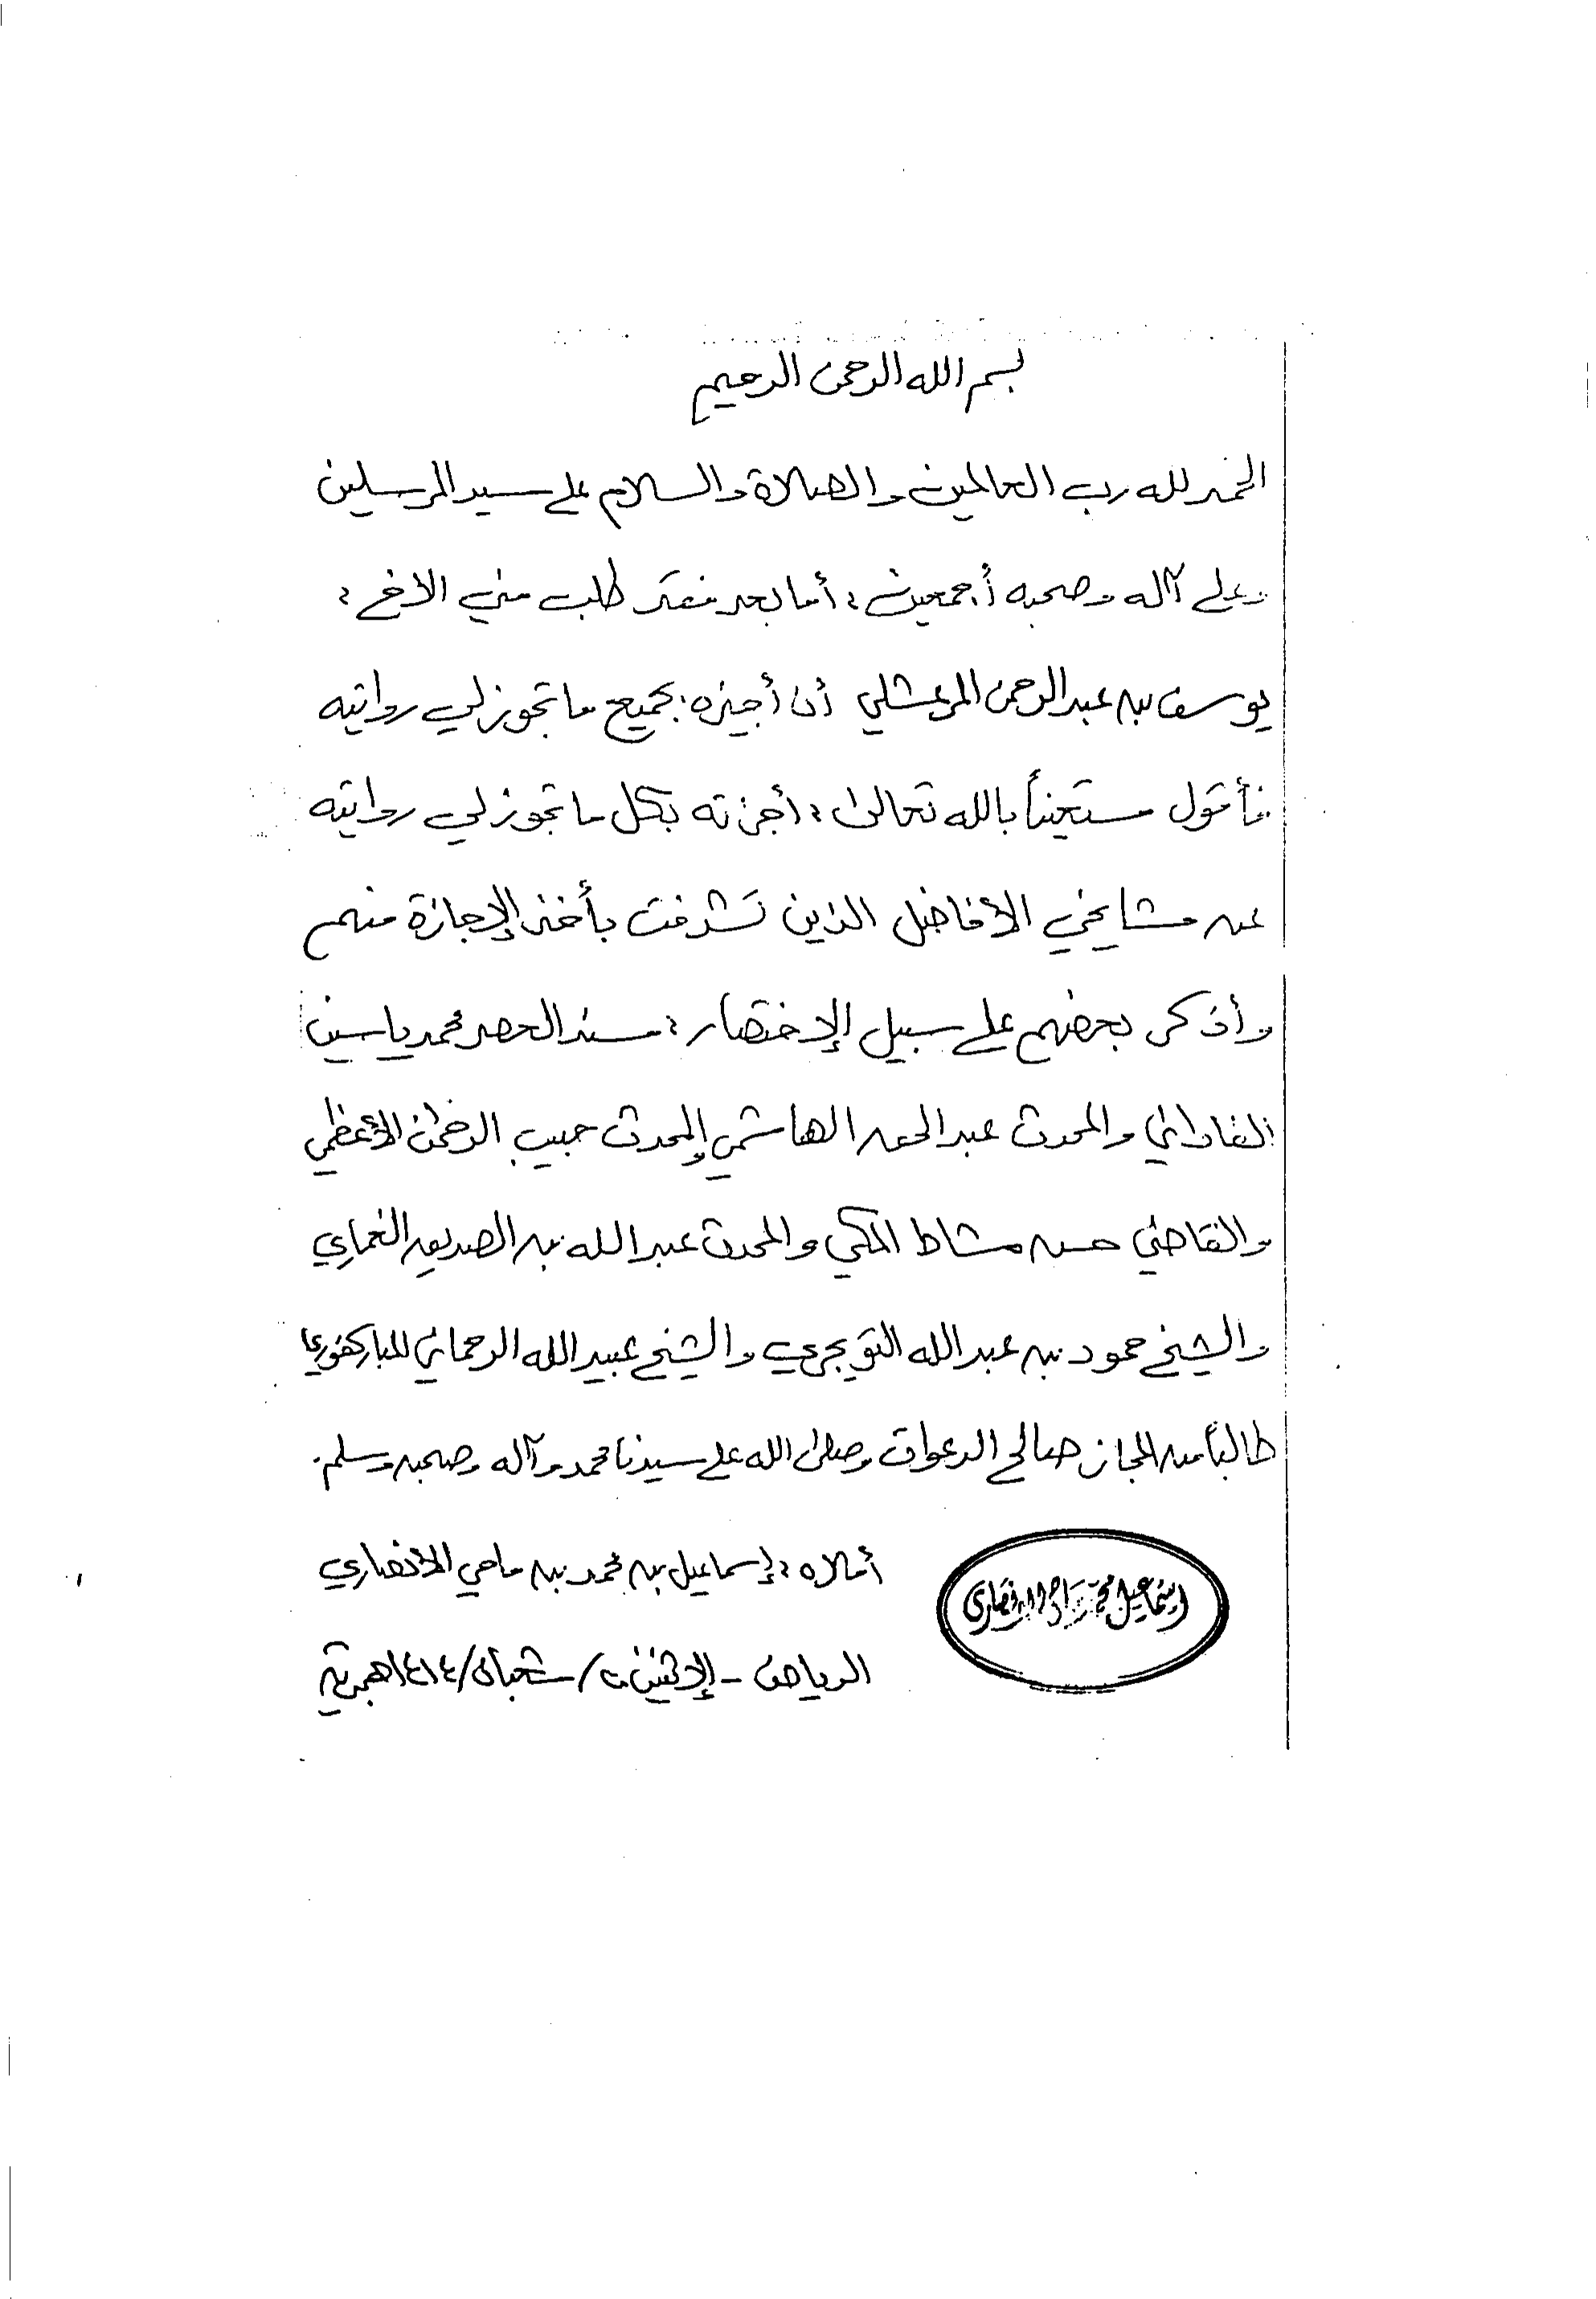 بسم الله الرحمن الرحيم
الحمد لله رب العالمين والصلاة والسلام على سيد المرسلين
وعلى آله وصحبه أجمعين، أما بعد فقد طلب مني الأخ:
يوسف بن عبد الرحمن المرعشلي أن أجيزه بجميع ما تجوز لي روايته
فأقول مستعيناً بالله تعالى: أجزته بكل ما تجوز لي روايته
عن مشايخي الأفاضل الذين تشرفت بأخذ الإجازة منهم
وأذكر بعضهم على سبيل الإختصار: مسند العصر محمد ياسين
الفاداني والمحدث عبد الحق الهاشمي والمحدث حبيب الرحمن الأعظمي
والقاضي حسن مشاط المكي والمحدث عبد الله بن الصديق الغماري
والشيخ حمود بن عبد الله التويجري والشيخ عبيد الله الرحماني المباركفوري
طالباً من المجاز صالح الدعوات وصلى الله على سيدنا محمد وآله وصحبه وسلم.
أملاه: إسماعيل بن محمد بن ماحي الأنصاري
إسماعيل محمد الأنصاري
الرياض - الإثنين /شعبان/١٤١٤هجرية